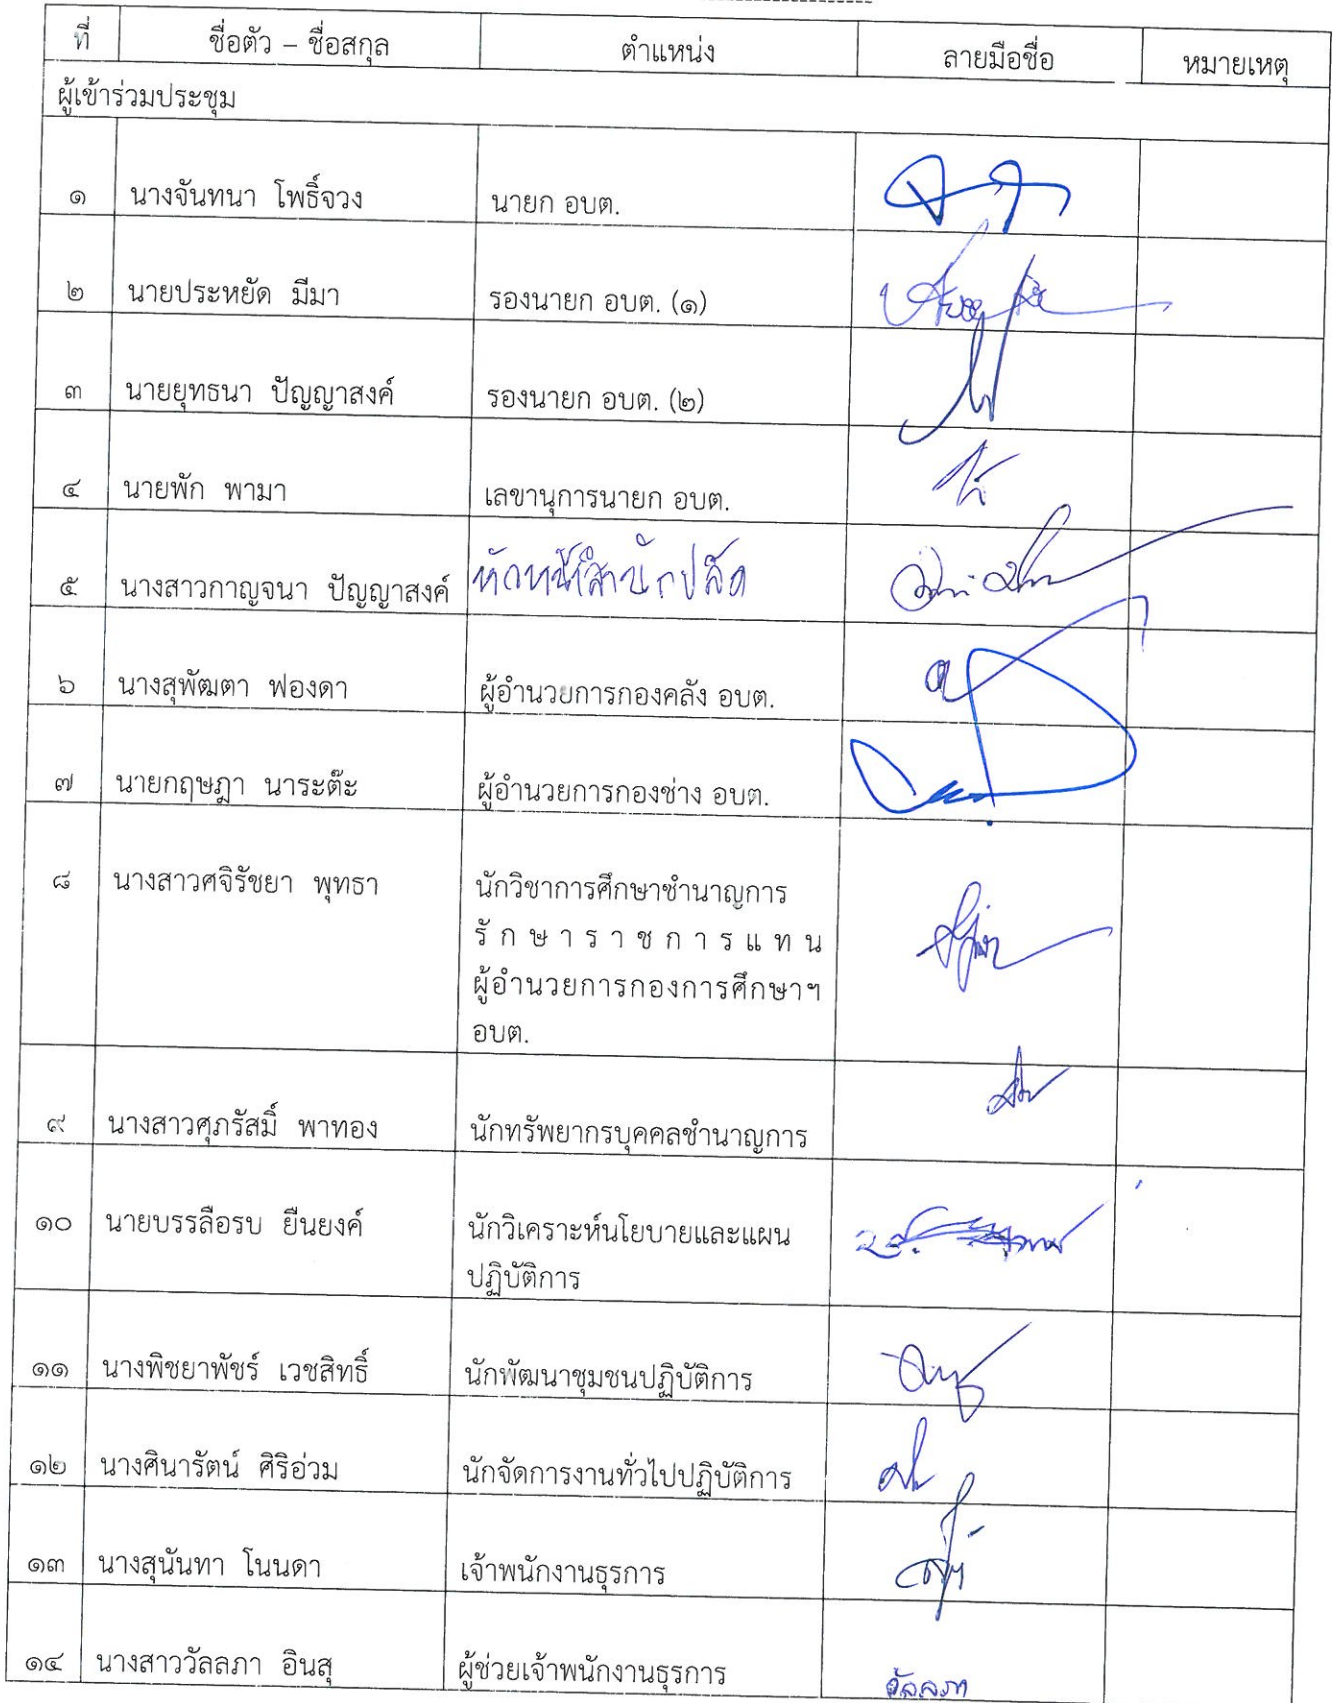 ที่ ชื่อตัว – ชื่อสกุล ตำแหน่ง ลายมือชื่อ หมายเหตุ
ผู้เข้าร่วมประชุม
๑ นางจันทนา โพธิ์จวง นายก อบต.
๒ นายประหยัด มีมา รองนายก อบต. (๑)
๓ นายยุทธนา ปัญญาสงค์ รองนายก อบต. (๒)
๔ นายพัก พามา เลขานุการนายก อบต.
๕ นางสาวกาญจนา ปัญญาสงค์ หัวหน้าสำนักปลัด
๖ นางสุพัฒตา ฟองดา ผู้อำนวยการกองคลัง อบต.
๗ นายกฤษฎา นาระต๊ะ ผู้อำนวยการกองช่าง อบต.
๘ นางสาวศจิรัชยา พุทธา นักวิชาการศึกษาชำนาญการ
รักษาราชการแทน
ผู้อำนวยการกองการศึกษาฯ
อบต.
๙ นางสาวศุภรัสมิ์ พาทอง นักทรัพยากรบุคคลชำนาญการ
๑๐ นายบรรลือรบ ยืนยงค์ นักวิเคราะห์นโยบายและแผน
ปฏิบัติการ
๑๑ นางพิชยาพัชร์ เวชสิทธิ์ นักพัฒนาชุมชนปฏิบัติการ
๑๒ นางศินารัตน์ ศิริอ่วม นักจัดการงานทั่วไปปฏิบัติการ
๑๓ นางสุนันทา โนนดา เจ้าพนักงานธุรการ
๑๔ นางสาววัลลภา อินสุ ผู้ช่วยเจ้าพนักงานธุรการ วัลลภา